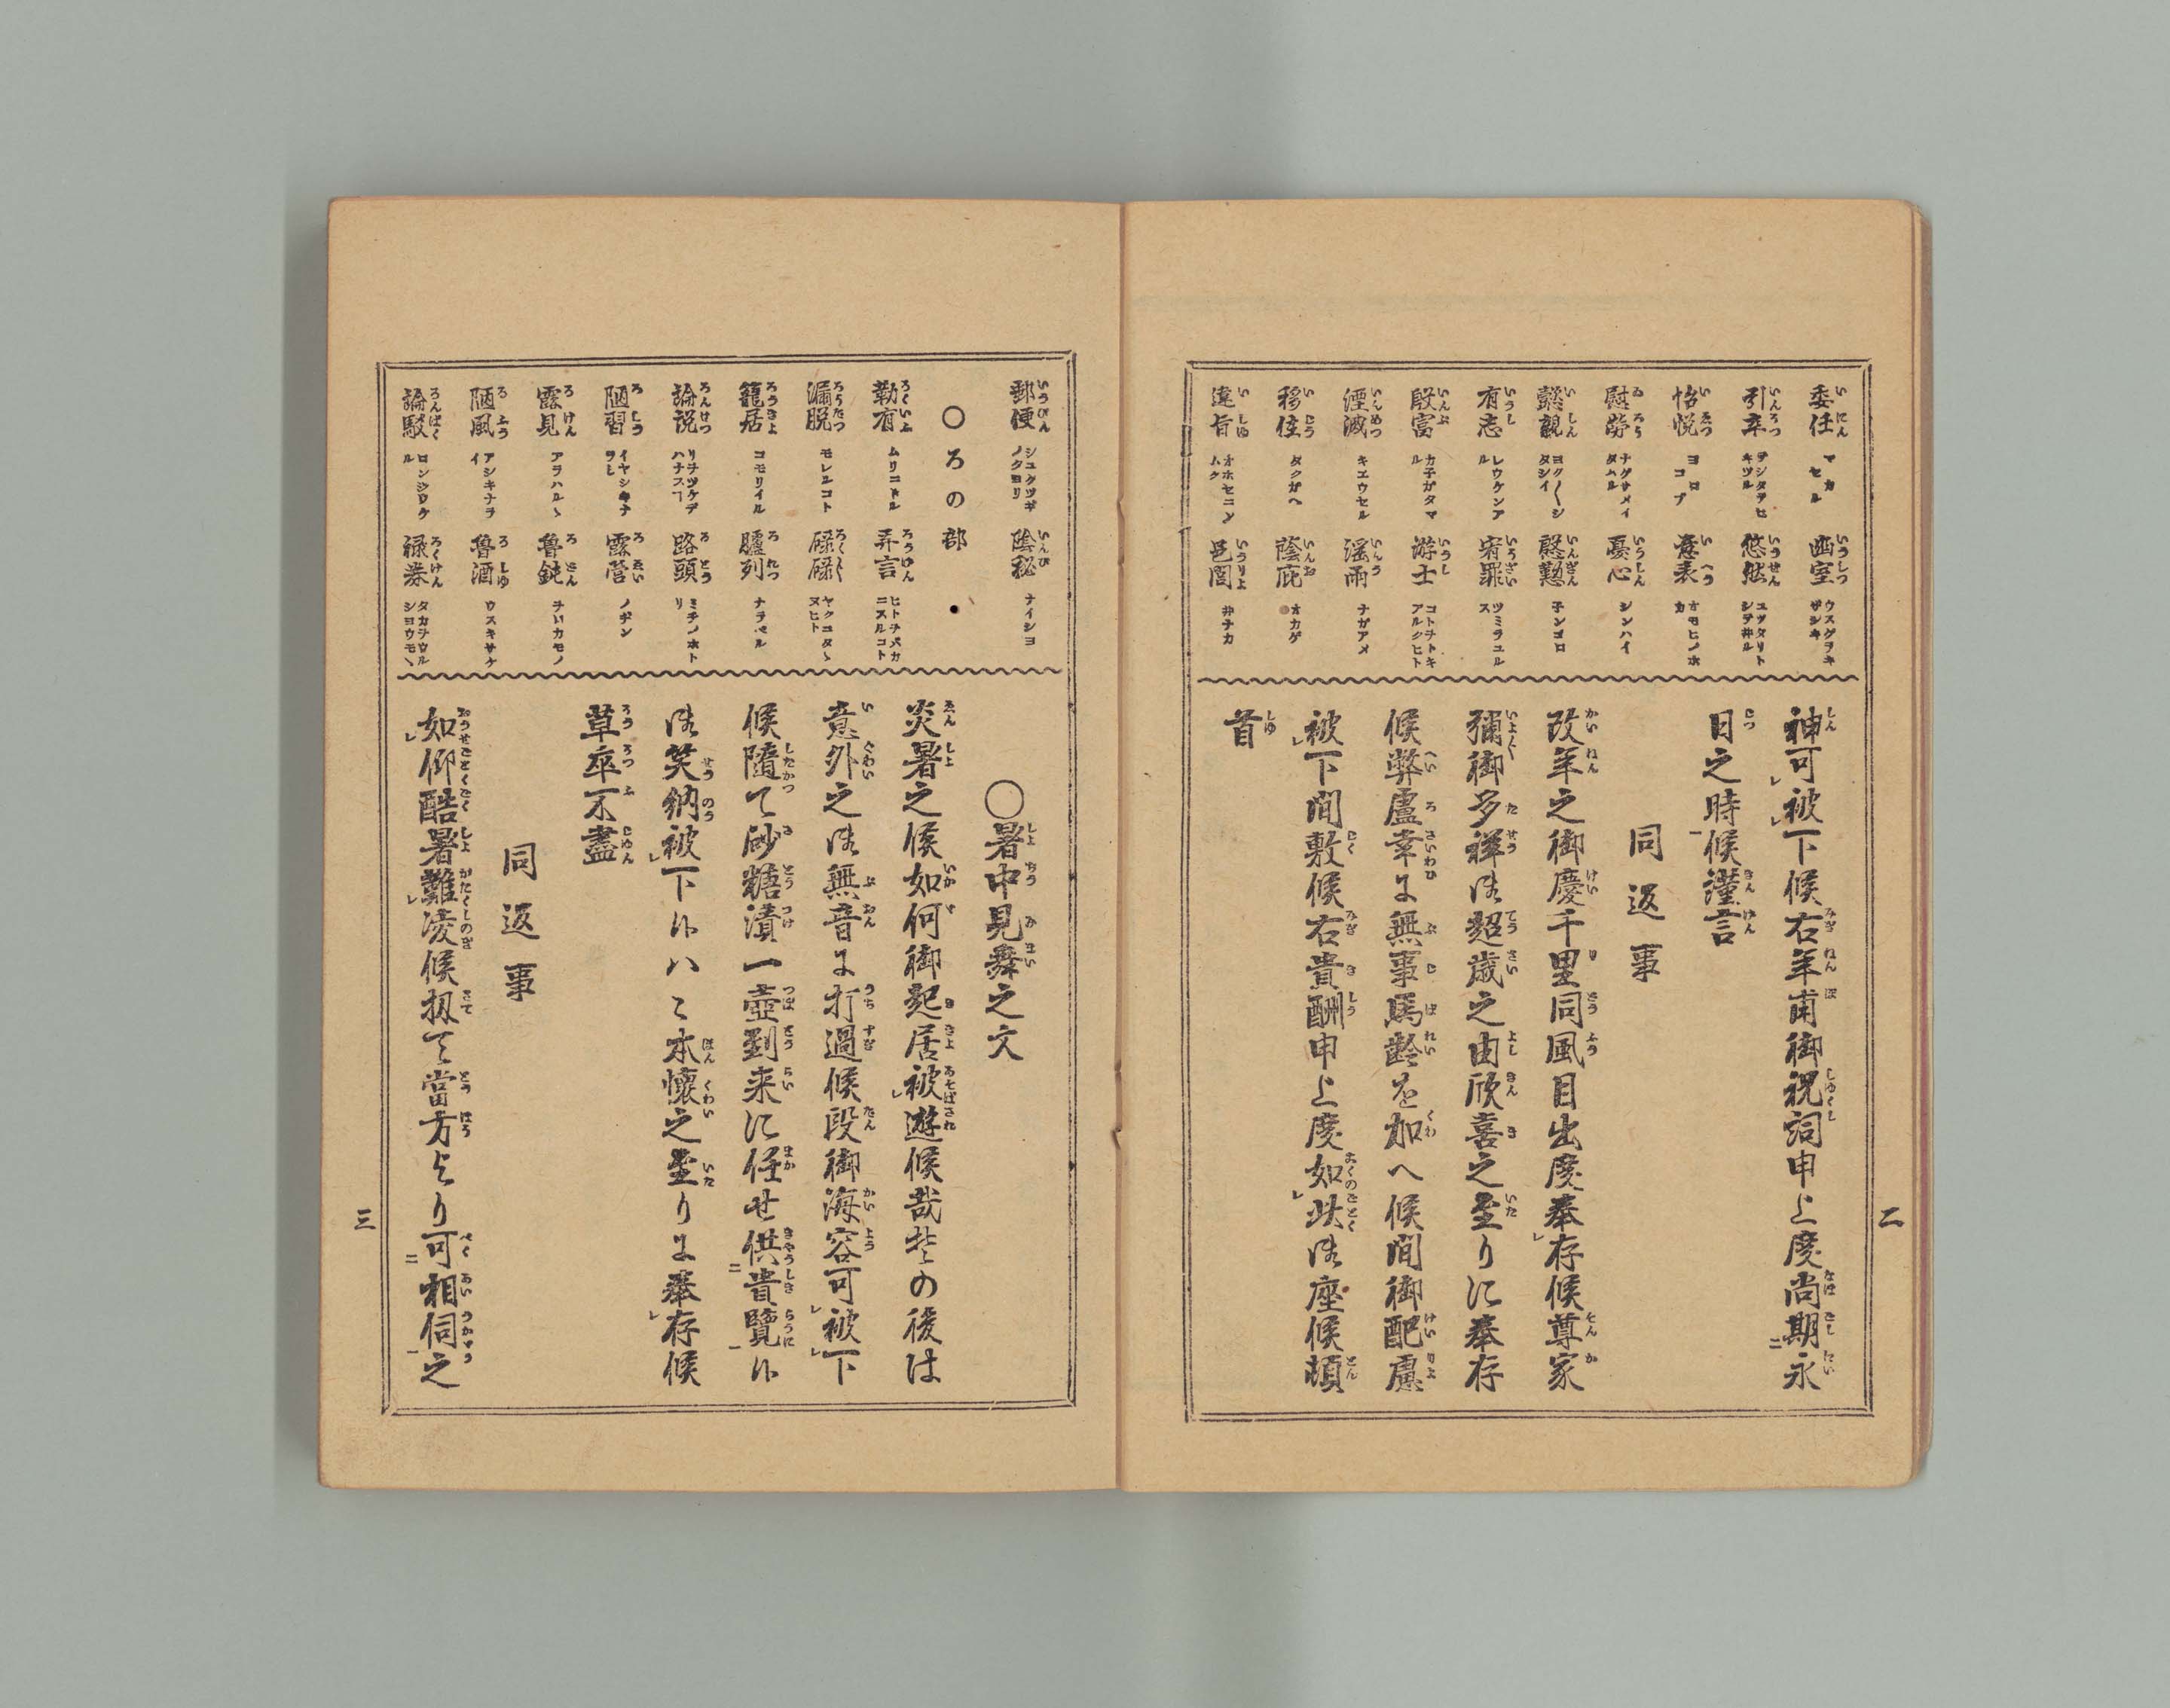 委任 マカセル
引卒 テシタヲヒキツル
怡悦 ヨロコブ
慰労 ナグサメイタハル
懿親 ヨク〳〵シタシイ
有志 レウケンアル
殷富 カ子ガタマル
湮滅 キエウセル
移住 タクガヘ
違旨 オホセニソムク
幽室 ウスグラキザシキ
悠然 ユツタリトシテ井ル
意表 オモヒノホカ
憂心 シンハイ
慇懃 子ンゴロ
宥罪 ツミヲユルス
游士 コトヲトキアルクヒト
淫雨 ナガアメ
蔭庇 オカゲ
邑閭 井ナカ
神可被下候右年甫御祝詞申上度尚期永
日之時候謹言
同返事
改年之御慶千里同風目出度奉存候尊家
彌御多祥御超歳之由欣喜之至りに奉存
候弊盧幸に無事馬齢を加へ候間御配慮
被下間敷候右貴酬申上度如此御座候頓
首
二
郵便 シユクツギノタヨリ
陰秘 ナイシヨ
〇ろの部・
勒有 ムリニトル
漏脱 モレルコト
籠居 コモリイル
論説 リヲツケテハナス
陋習 イヤシキナラシ
露見 アラハルヽ
陋風 アシキナライ
論駁 ロンジツケル
弄言 ヒトヲバカニスルコト
碌碌 ヤクニタヽヌヒト
臚列 ナラベル
路頭 ミチノホトリ
露營 ノヂン
魯鈍 ヲロカモノ
魯酒 ウスキサケ
禄券 タカヲウルシヨウモン
〇暑中見舞之文
炎暑之候如何御起居被遊候哉其の後は
意外之御無音に打過候段御海容可被下
候隨て砂糖漬一壺到来に任せ供貴覽候
御笑納被下候ハヽ本懷之至りに奉存候
草卒不盡
同返事
如仰酷暑難凌候扨て當方より可相伺之
三